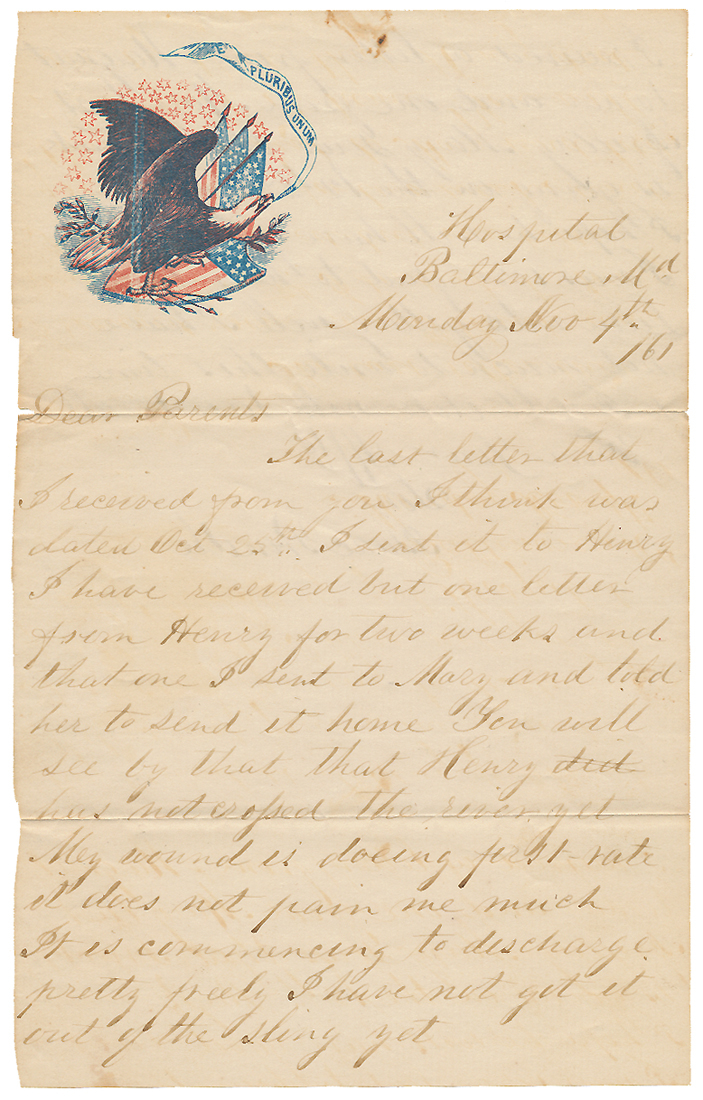 E PLURIBUS UNUM
Hospital
Baltimore Md
Monday Nov 4th
/61
Dear Parents
The last letter that
I received from you I think was
dated Oct 25th. I sent it to Henry
I have received but one letter
from Henry for two weeks and
that one I sent to Mary and told
her to send it home You will
see by that that Henry did
has not crossed the river yet
My wound is doeing first-rate
it does not pain me much
It is commencing to discharge
pretty freely I have not got it
out of the sling yet